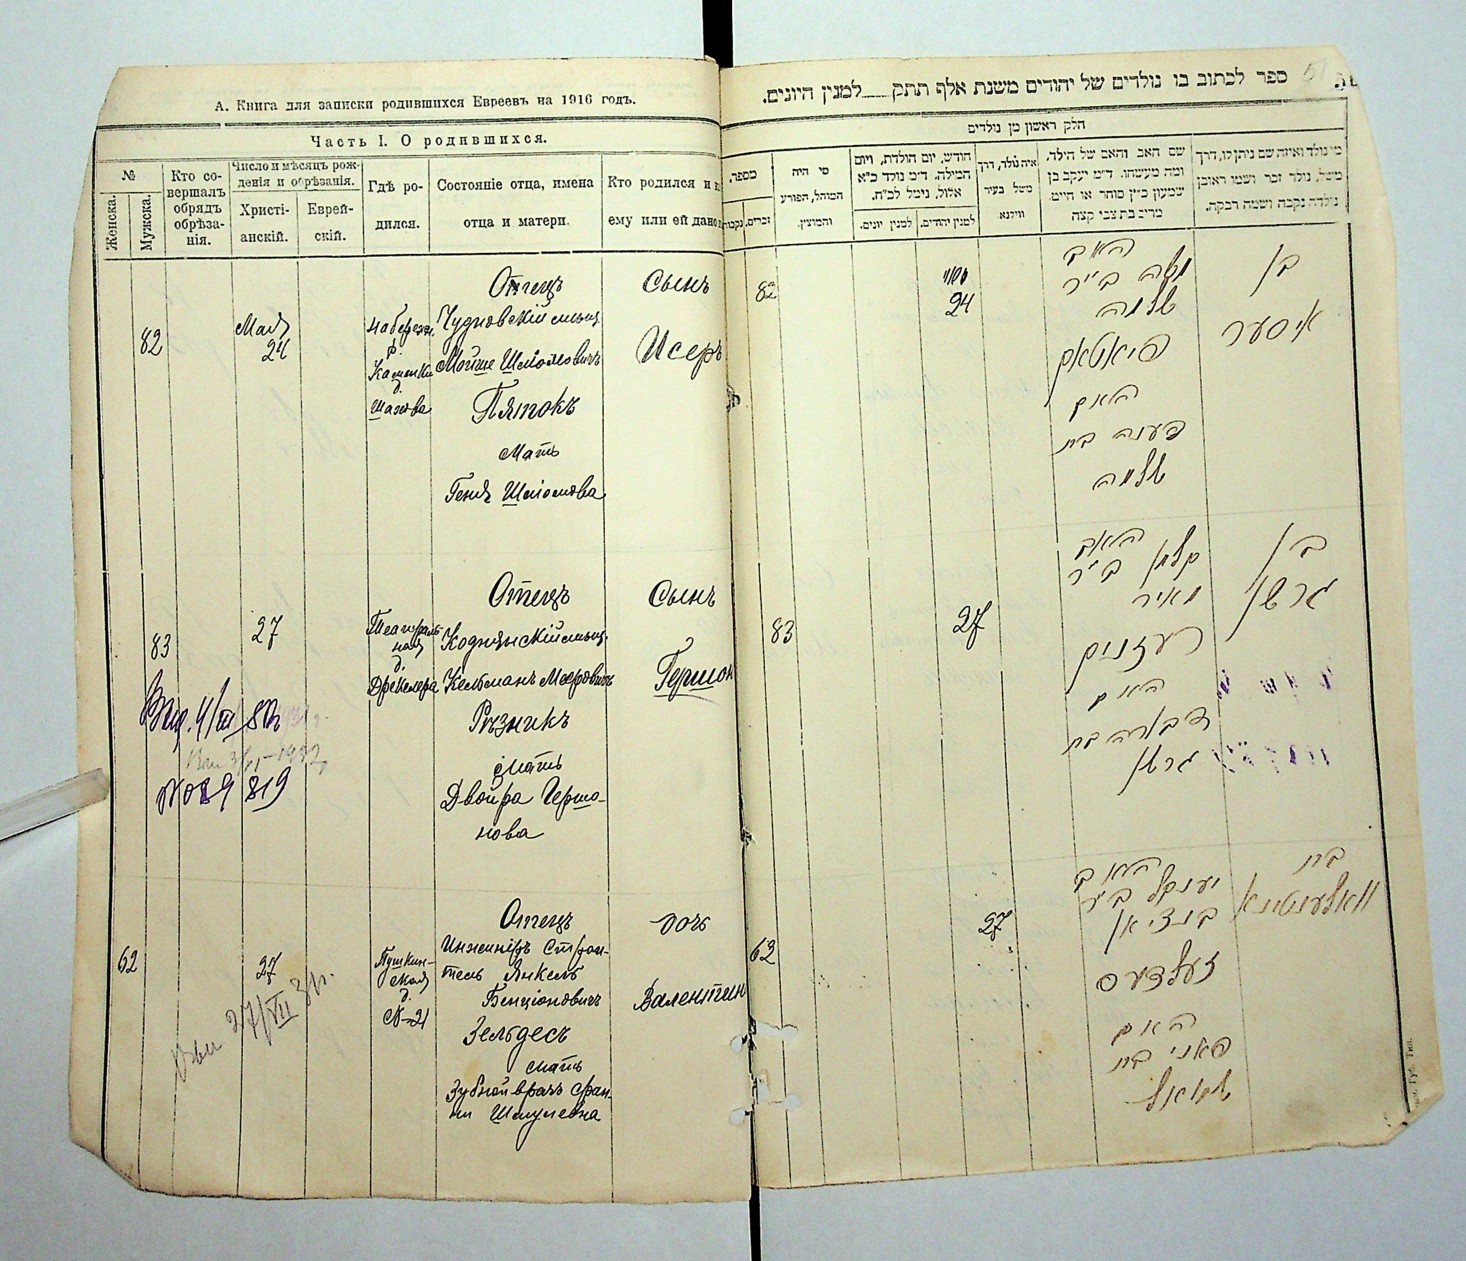 А. Книга для записки родившихся Евреевъ на 1916 годъ.
Часть I. О родившихся.
№
Женска.
Мужска.
Кто со-
вершалъ
обрядъ
обрѣза-
нія.
Число и мѣсяцъ рож-
денія и обрѣзанія.
Христі-
анскій.
Еврей-
скій.
Гдѣ ро-
дился.
Состояніе отца, имена
отца и матери.
Кто родился и к
ему или ей дано
82
Мая
24
Набережн.
р.
Каменки
д.
Шахова
Отецъ
Чудновскій мѣщ.
Мойше Шліомовичъ
Пятокъ
Мать
Геня Шліомова
Сынъ
Исеръ
83
27
Театраль-
ная
д.
Дрекслера
Отецъ
Коднянскій мѣщ.
Кельманъ Мееровичъ
Рѣзникъ
Мать
Двойра Гершо-
нова
Сынъ
Гершон
№ 819
62
27
Пушкин-
ская
д.
№ 21
Отецъ
Инженеръ Строи-
тель Янкель
Бенціоновичъ
Зельдесъ
Мать
Зубной врачъ Фан-
ни Шмулевна
Дочь
Валентин
27/VII 31г.
ספר לכתוב בו נולדים של יהודים משנת אלף תתק למנין היונים.
51
חלק ראשון מן נולדים
מספר,
זכרים.
נקבות
מי היה
המוהל, הפורע
והמוצץ.
חודש, יום הולדת, ויום
המילה. ד״מ נולד כ״א
אלול, נימל לכ״ח.
למנין יונים.
למנין יהודים.
איה נולד, דרך
משל בעיר
ווילנא.
שם האב והאם של הילד,
ומה מעשהו. ד״מ יעקב בן
שמעון כ״ץ סוחר או חייט
מרים בת צבי קצה
מי נולד ואיזה שם ניתן לו, דרך
משל, נולד זכר ושמו ראובן
נולדה נקבה ושמה רבקה.
82
24
האב
משה ב״ר
שלמה
פיאטאק
האם
געניה בת
שלמה
בן
איסער
83
27
האב
קלמן ב״ר
מאיר
רעזניק
האם
דבורה בת
גרשון
בן
גרשון
62
27
האב
יענקל ב״ר
בנציאן
זעלדעס
האם
פאני בת
שמואל
בת
וואלענטינא